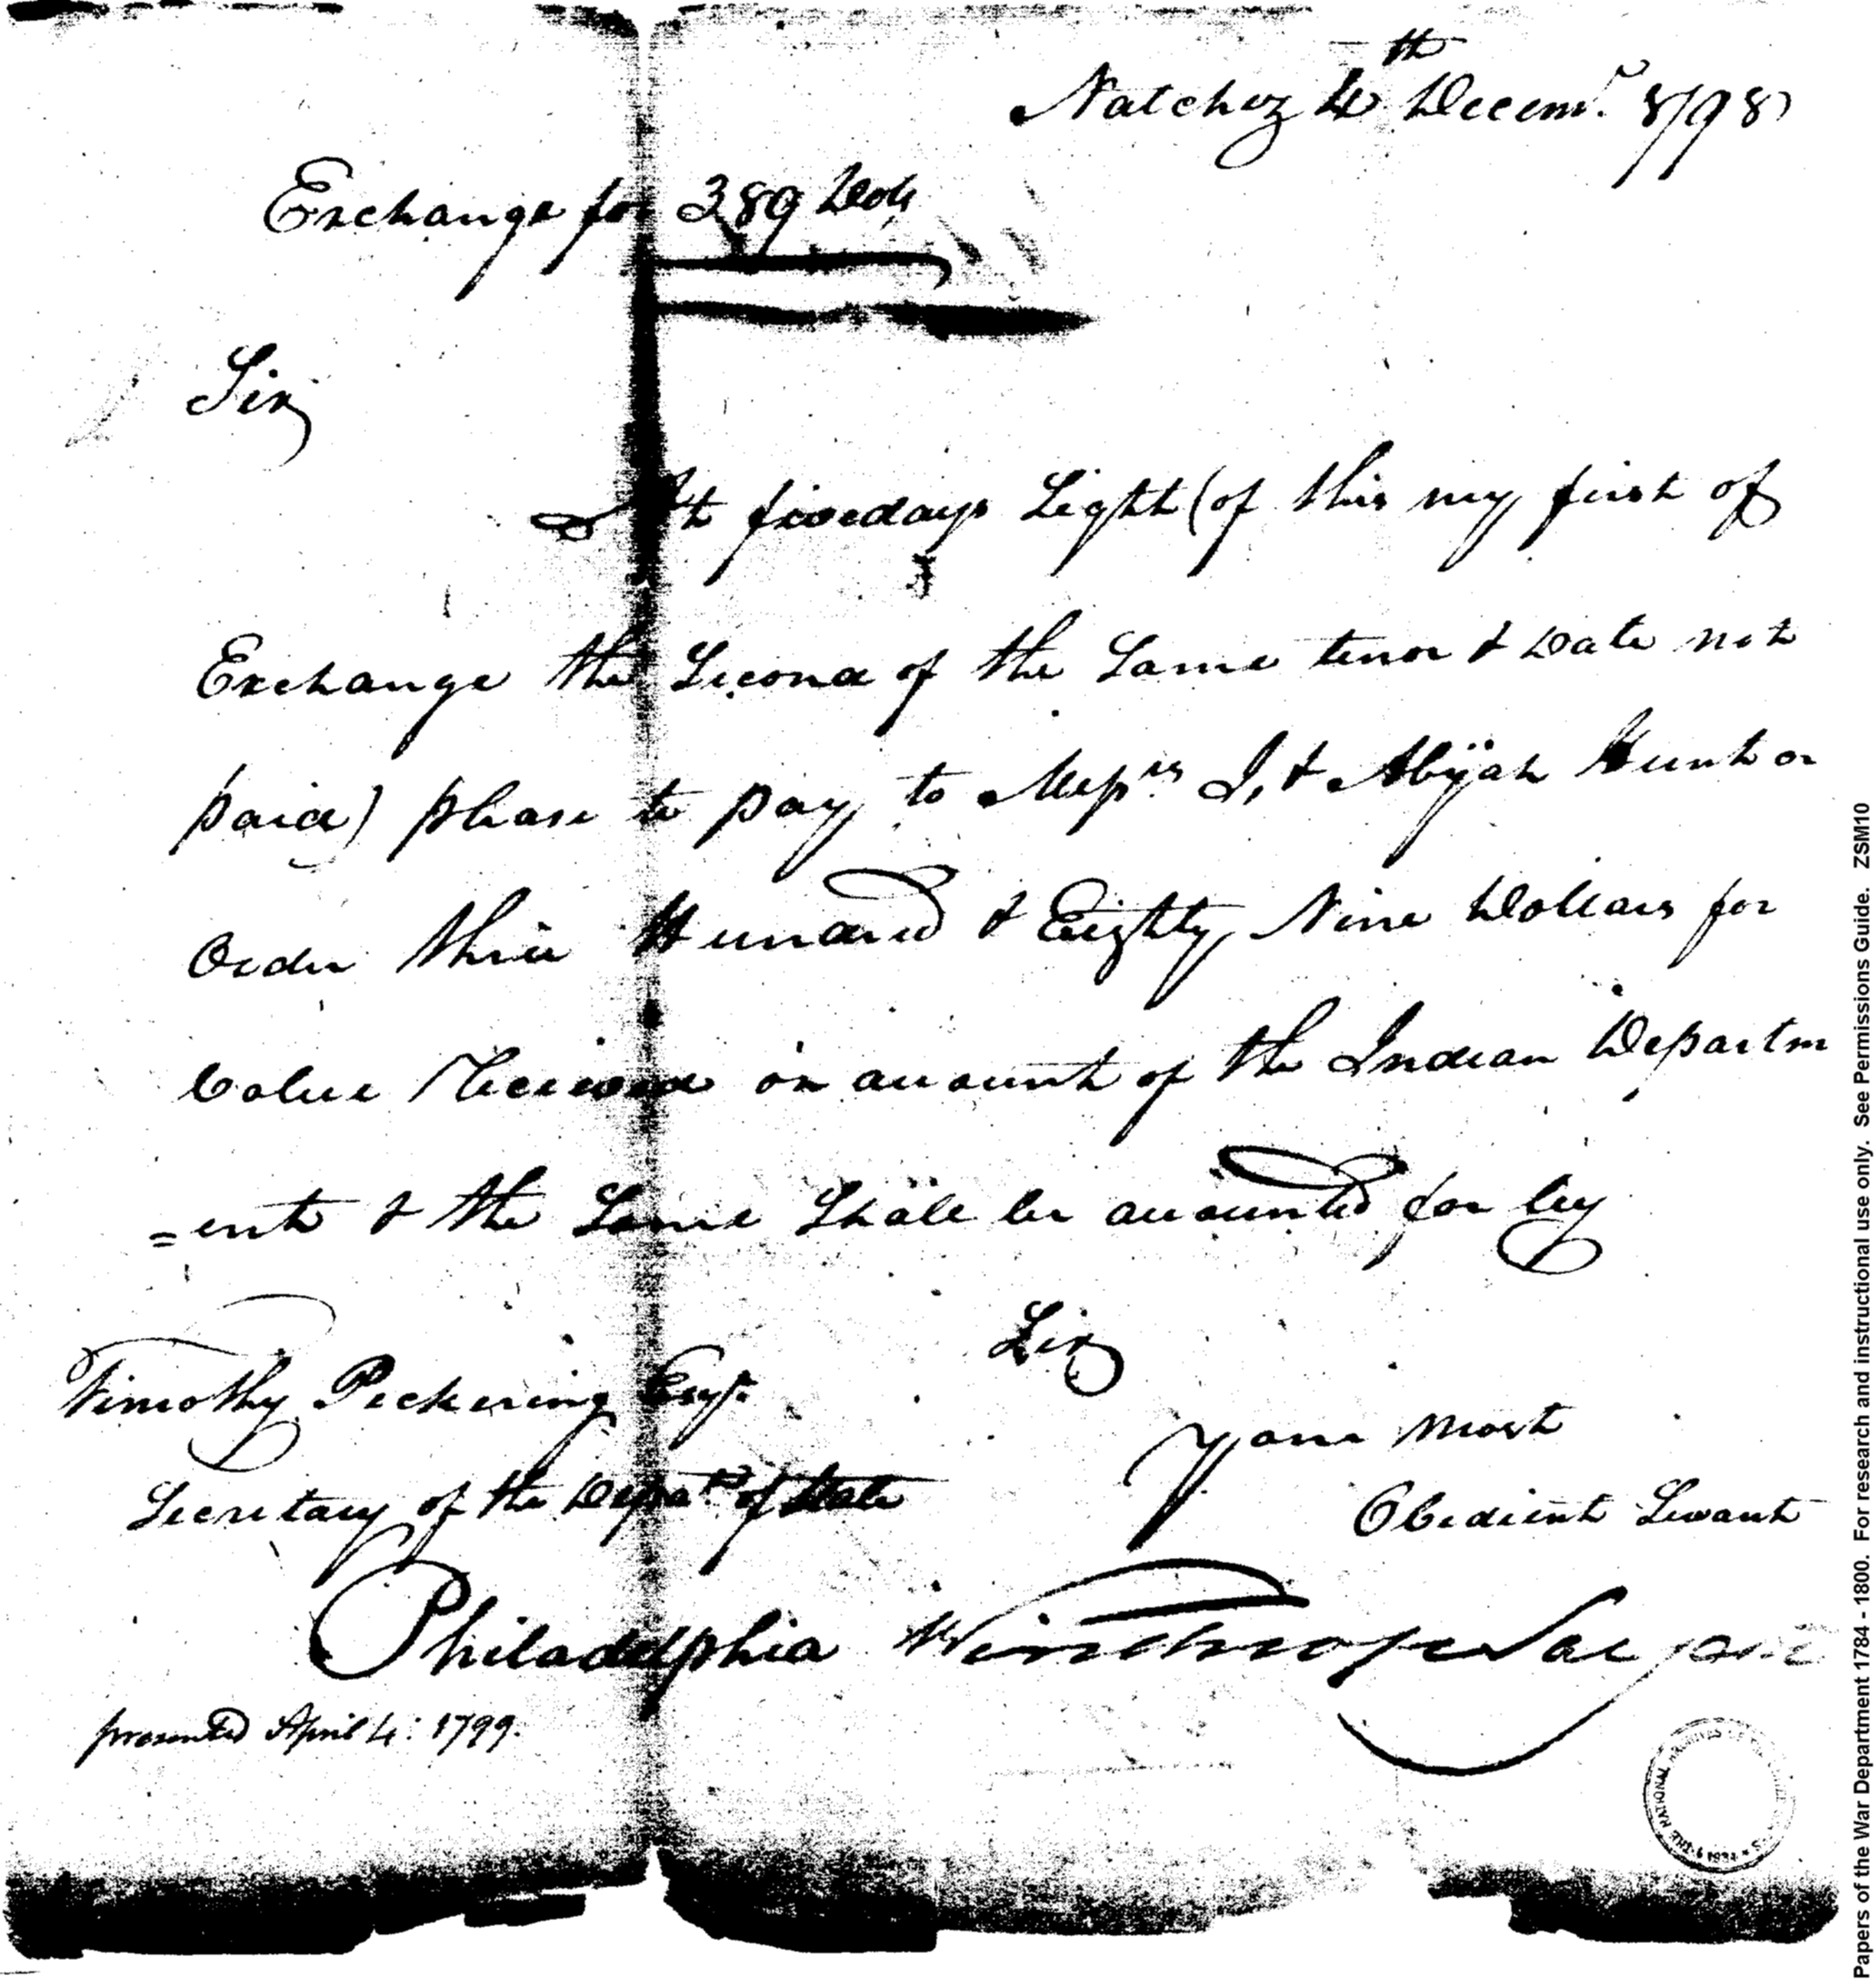 Natchez 4th Decemr. 1798
Exchange for 389 Dols
Sir
At five days Sight (of this my first of
Exchange the Second of the Same tenor & Date not
paid) please to pay to Messrs. J, & Abijah Hunt or
Order three Hundred & Eighty Nine Dollars for
Value Received on account of the Indian Departm
=ent & the Same Shall be accounted for by
Sir
Timothy Pickering Esqr.
Your most
Secretary of the Depatt. of State
Obedient Servant
Philadelphia Winthrop Sargent
presented April 4: 1799.
Papers of the War Department 1784 - 1800. For research and instructional use only. See Permissions Guide. ZSM10